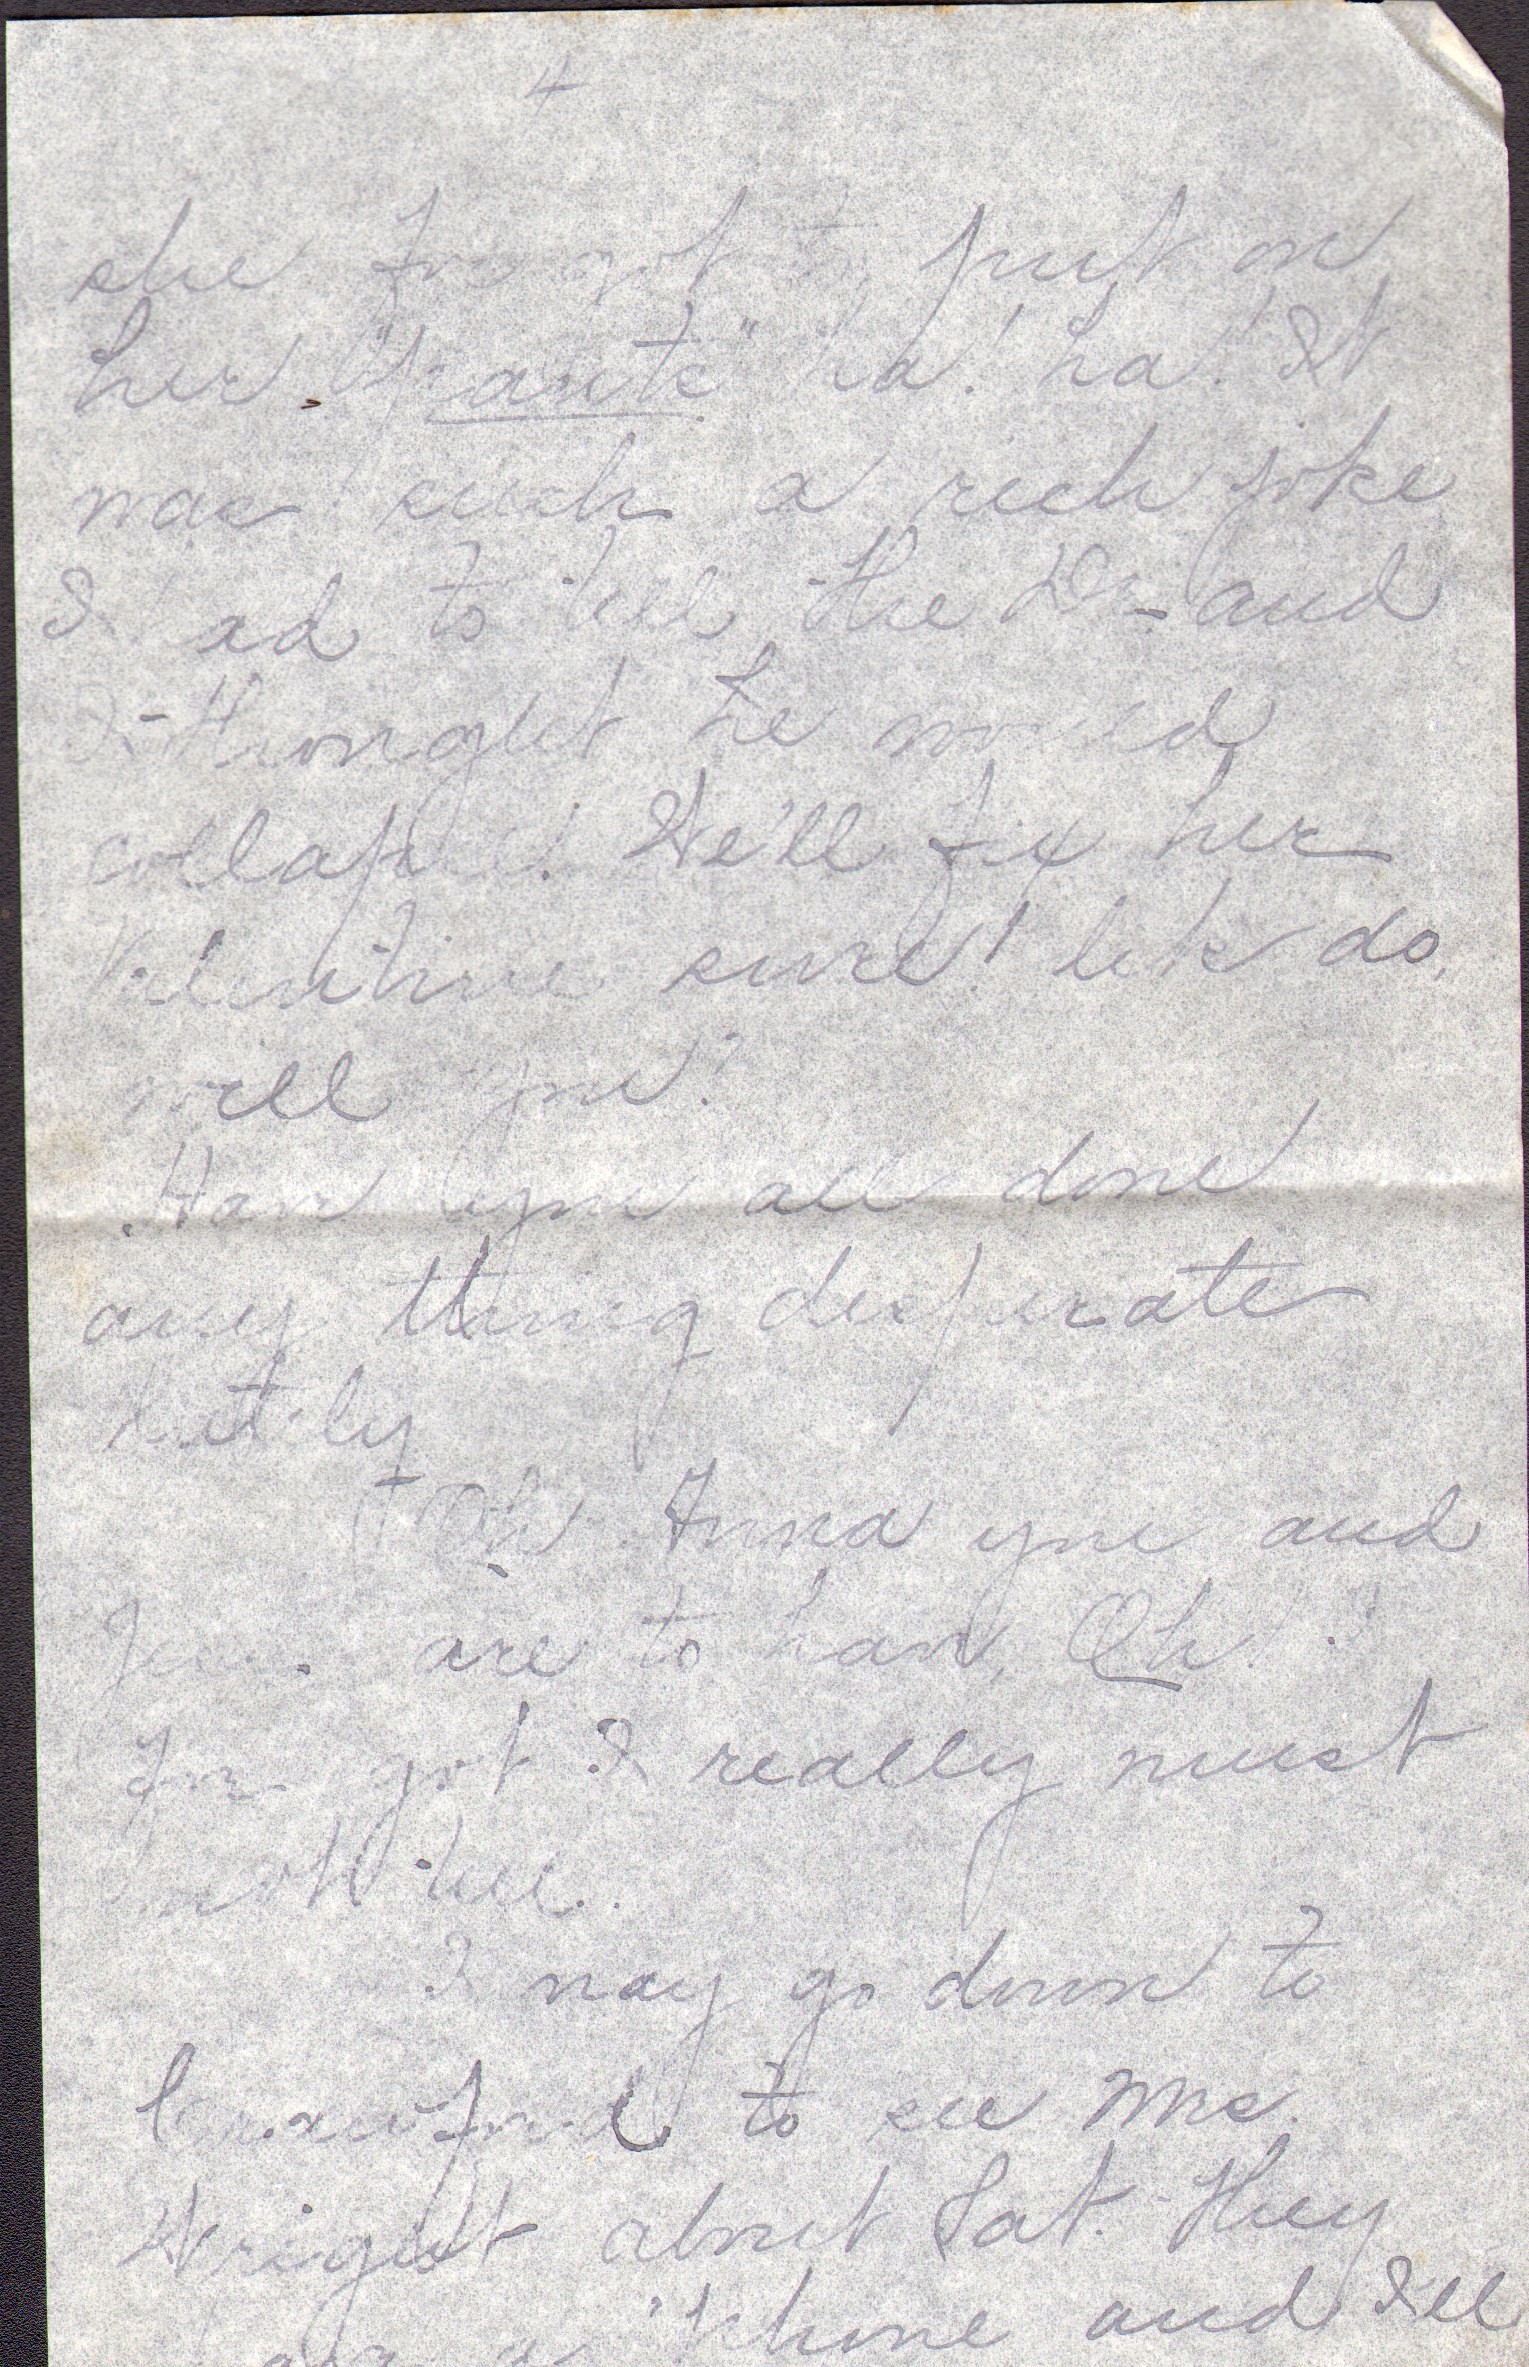 4
she forgot to put on
her "pants" ha! ha! It
was such a rich joke
I had to tell the Dr- and
I thought he would
collapse! We'll fix her
Valentine sure! let's do,
will you?
Have you all done
any thing desperate
lately
Oh Anna you and
are to have, Oh!
Forgot I really must
not tell.
I may go down to
Crawford to see Mrs.
Wright about Sat. They
a 'phone and I'll